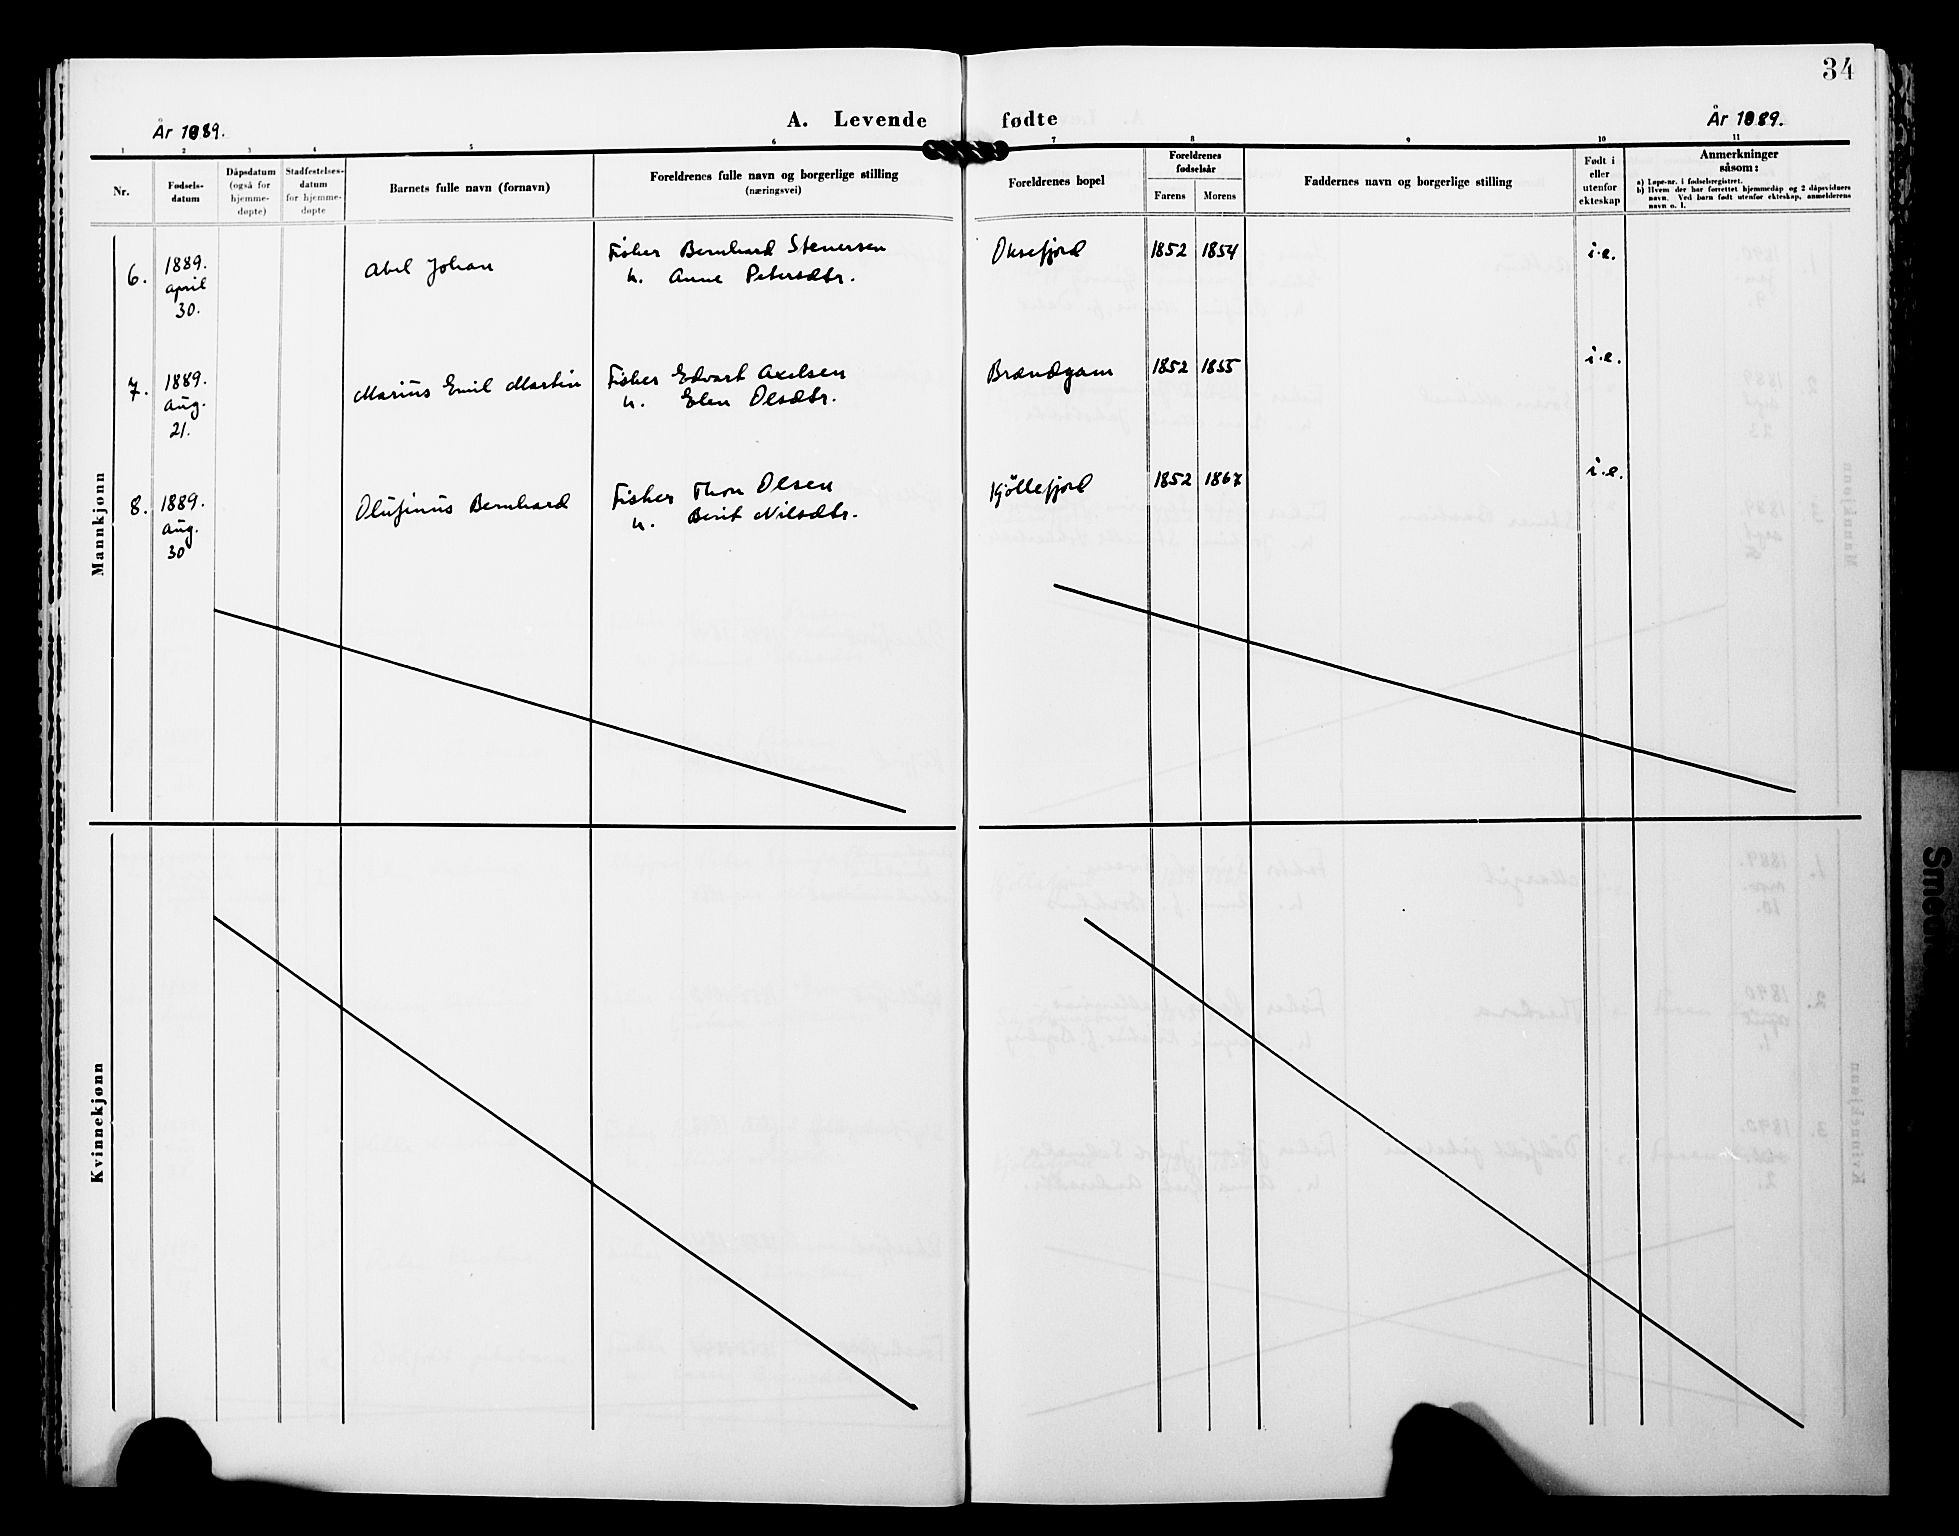 34
A. Levende fødte
År 1889.
År 1889.
1 2 3 4 5 6 7 8 9 10 11
Nr.
Fødsels-
datum
Dåpsdatum
(også for
hjemme-
døpte)
Stadfestelses-
datum
for hjemme-
døpte
Barnets fulle navn (fornavn)
Foreldrenes fulle navn og borgerlige stilling
(næringsvei)
Foreldrenes bopel
Foreldrenes
fødselsår
Farens Morens
Faddernes navn og borgerlige stilling
Født i
eller
utenfor
ekteskap
Anmerkninger
såsom:
a) Løpe-nr. i fødselsregistret.
b) Hvem der har forrettet hjemmedåp og 2 dåpsvidners
navn. Ved barn født utenfor ekteskap, anmelderens
navn o. l.
Mannkjønn
6. 1889. april 30. Abel Johan Fisker Bernhard Stenersen Oksefjord 1852 1854 i.e.
h. Anne Petersdtr.
7. 1889. aug. 21. Marius Emil Martin Fisker Edvart Axelsen Brændgam 1852 1855 i.e.
h. Elen Olsdtr.
8. 1889. aug. 30 Olufinus Bernhard Fisker Thon Olsen Kjöllefjord 1852 1867 i.e.
h. Berit Nilsdtr.
Kvinnekjønn